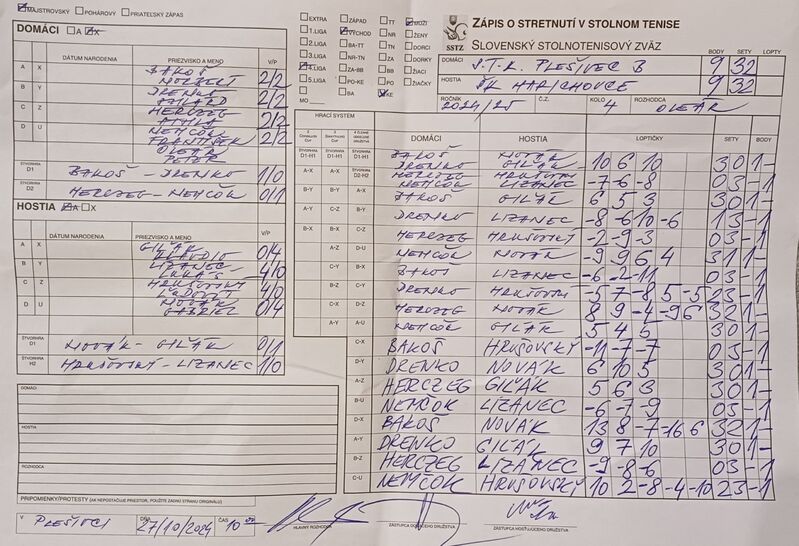 MAJSTROVSKÝ POHÁROVÝ PRIATEĽSKÝ ZÁPAS
DOMÁCI A X
DÁTUM NARODENIA PRIEZVISKO A MENO V/P
A X BAKOŠ NORBERT 2/2
B Y DRENKO 2/2
C Z HERCZEG ATTILA 2/2
D U NEMČOK FRANTIŠEK 2/2
OLEÁR PETER
ŠTVORHRA D1 BAKOŠ - DRENKO 1/0
ŠTVORHRA D2 HERCZEG - NEMČOK 0/1
HOSTIA A X
DÁTUM NARODENIA PRIEZVISKO A MENO V/P
A X GIĽÁK KLAUDIO 0/4
B Y LIZANEC LUKÁŠ 4/0
C Z HRUŠOVSKÝ ĽUDOVÍT 4/0
D U NOVÁK GABRIEL 0/4
ŠTVORHRA D1 NOVÁK - GIĽÁK 0/1
ŠTVORHRA H2 HRUŠOVSKÝ - LIZANEC 1/0
DOMÁCI
HOSTIA
ROZHODCA
PRIPOMIENKY/PROTESTY (AK NEPOSTAČUJE PRIESTOR, POUŽITE ZADNÚ STRANU ORIGINÁLU)
V PLEŠIVCI DŇA 27/10/2024 ČAS 10 00
HLAVNÝ ROZHODCA
ZÁSTUPCA DOMÁCEHO DRUŽSTVA
ZÁSTUPCA HOSŤUJÚCEHO DRUŽSTVA
EXTRA ZÁPAD TT MUŽI
1.LIGA VÝCHOD NR ŽENY
2.LIGA BA-TT TN DORCI
3.LIGA NR-TN ZA DORKY
4.LIGA ZA-BB BB ŽIACI
5.LIGA PO-KE PO ŽIAČKY
MO BA KE
SSTZ
ZÁPIS O STRETNUTÍ V STOLNOM TENISE
SLOVENSKÝ STOLNOTENISOVÝ ZVÄZ
BODY SETY LOPTY
DOMÁCI Š.T.K. PLEŠIVEC B 9 32
HOSTIA ŠK HARICHOVCE 9 32
ROČNÍK 2024/25 Č.Z. KOLO 4 ROZHODCA OLEÁR
HRACÍ SYSTÉM
DOMÁCI HOSTIA LOPTIČKY SETY BODY
BAKOŠ DRENKO NOVÁK GIĽÁK 10 6 10 3 0 1 -
HERCZEG NEMČOK HRUŠOVSKÝ LIZANEC -7 -6 -8 0 3 - 1
BAKOŠ GIĽÁK 6 5 3 3 0 1 -
DRENKO LIZANEC -8 -6 10 -6 1 3 - 1
HERCZEG HRUŠOVSKÝ -2 -9 -3 0 3 - 1
NEMČOK NOVÁK -9 9 6 4 3 1 1 -
BAKOŠ LIZANEC -6 -2 -11 0 3 - 1
DRENKO HRUŠOVSKÝ -5 7 -8 5 -5 2 3 - 1
HERCZEG NOVÁK 8 9 -4 -9 6 3 2 1 -
NEMČOK GIĽÁK 5 4 5 3 0 1 -
C-X BAKOŠ HRUŠOVSKÝ -11 -7 -7 0 3 - 1
D-Y DRENKO NOVÁK 6 10 5 3 0 1 -
A-Z HERCZEG GIĽÁK 5 6 3 3 0 1 -
B-U NEMČOK LIZANEC -6 -7 -9 0 3 - 1
D-X BAKOŠ NOVÁK 13 8 -7 -16 6 3 2 1 -
A-Y DRENKO GIĽÁK 9 7 10 3 0 1 -
B-Z HERCZEG LIZANEC -9 -8 -6 0 3 - 1
C-U NEMČOK HRUŠOVSKÝ 10 2 -8 -4 -10 2 3 - 1